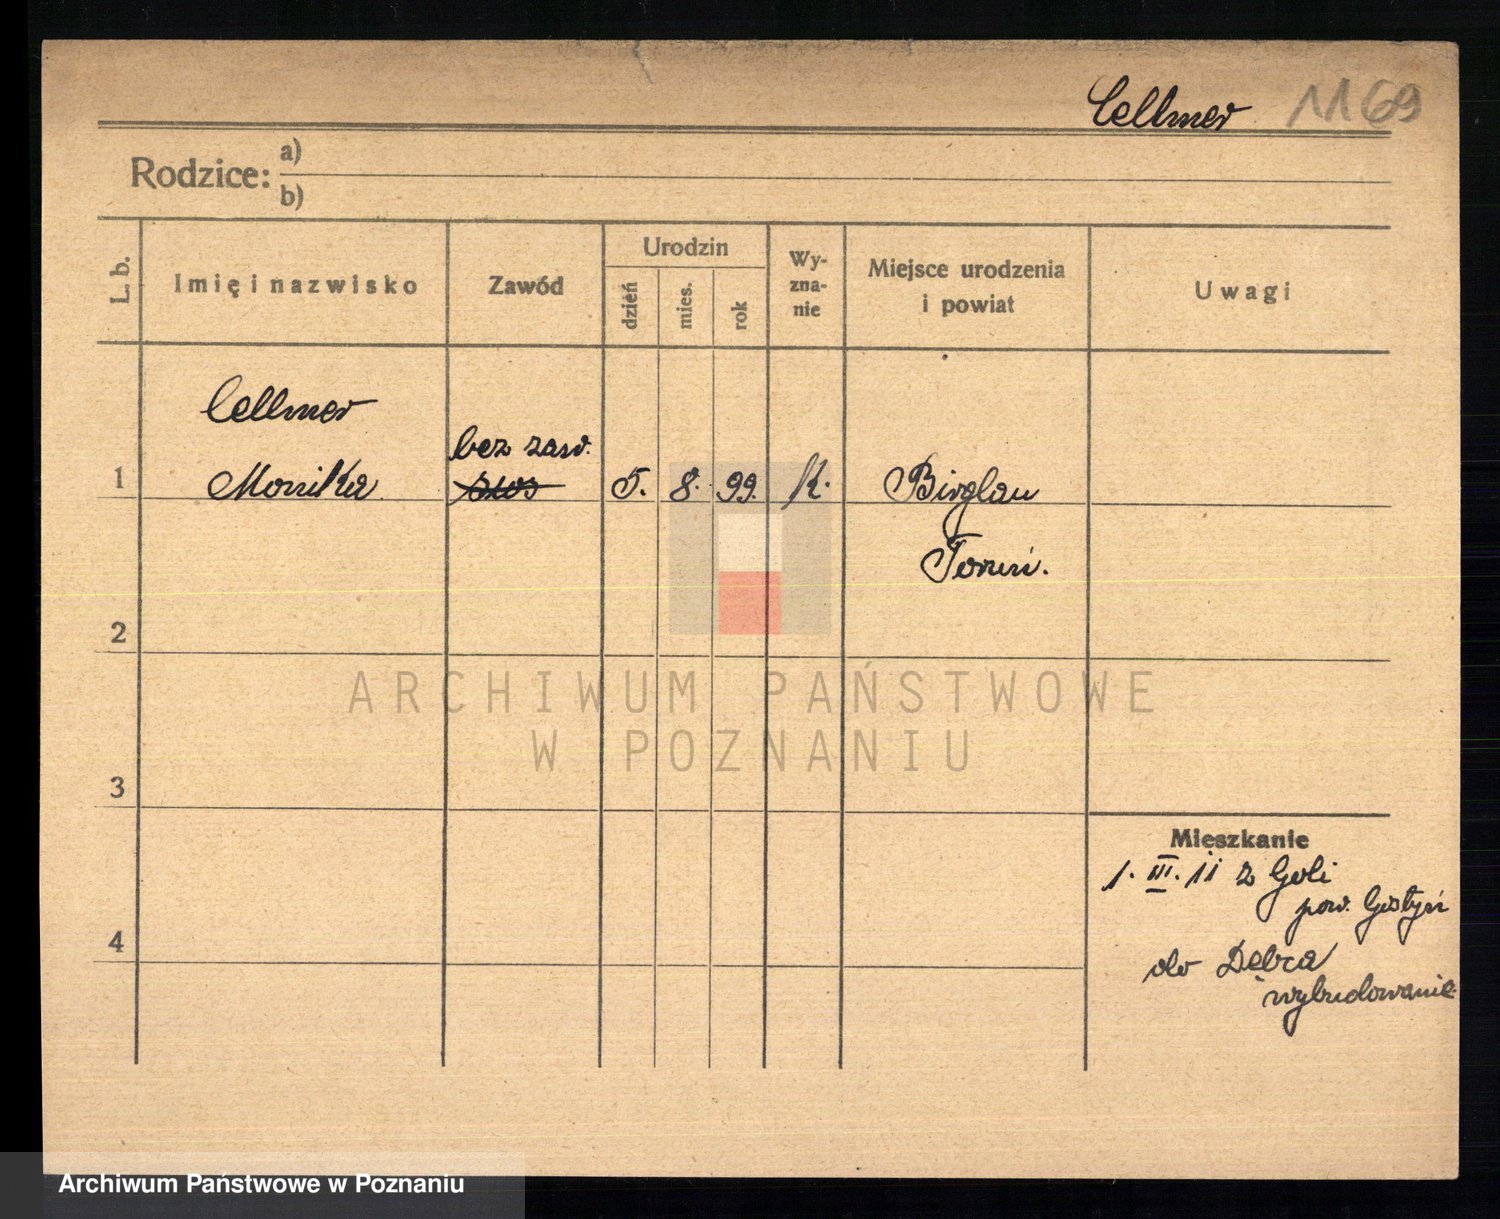 Cellmer 1169
Rodzice: a)
b)
L. b.
Imię i nazwisko
Zawód
Urodzin
dzień
mies.
rok
Wy-
zna-
nie
Miejsce urodzenia
i powiat
Uwagi
Cellmer
bez zaw.
1 Monika 5. 8. 99. K. Birglau
Toruń.
2
3
4
Mieszkanie
1. III. 11 z Goli
pow. Gostyń
do Dębca
wybudowanie
ARCHIWUM PAŃSTWOWE
W POZNANIU
Archiwum Państwowe w Poznaniu